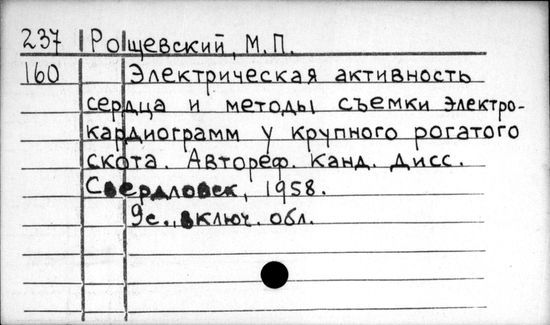 237 Рощевский, М.П.
160 Электрическая активность
сердца и методы съемки электро-
кардиограмм у крупного рогатого
скота. Автореф. канд. дисс.
Свердловск, 1958.
9с., включ. обл.